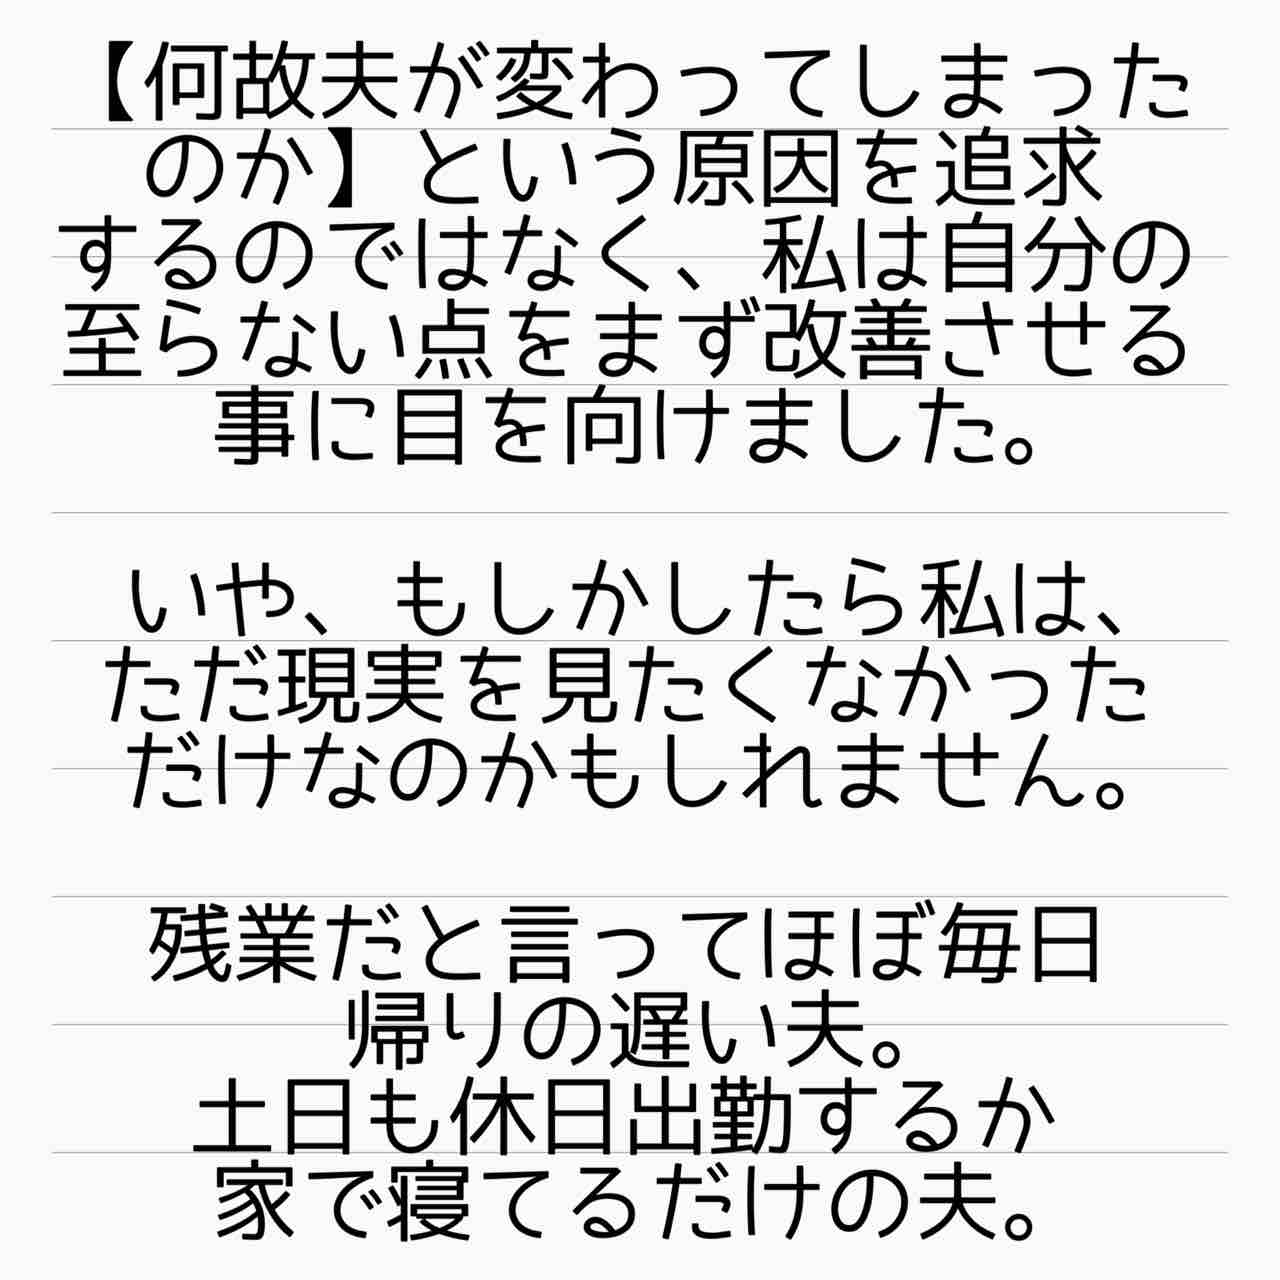 【何故夫が変わってしまった
のか】という原因を追求
するのではなく、私は自分の
至らない点をまず改善させる
事に目を向けました。
いや、もしかしたら私は、
ただ現実を見たくなかった
だけなのかもしれません。
残業だと言ってほぼ毎日
帰りの遅い夫。
土日も休日出勤するか
家で寝てるだけの夫。